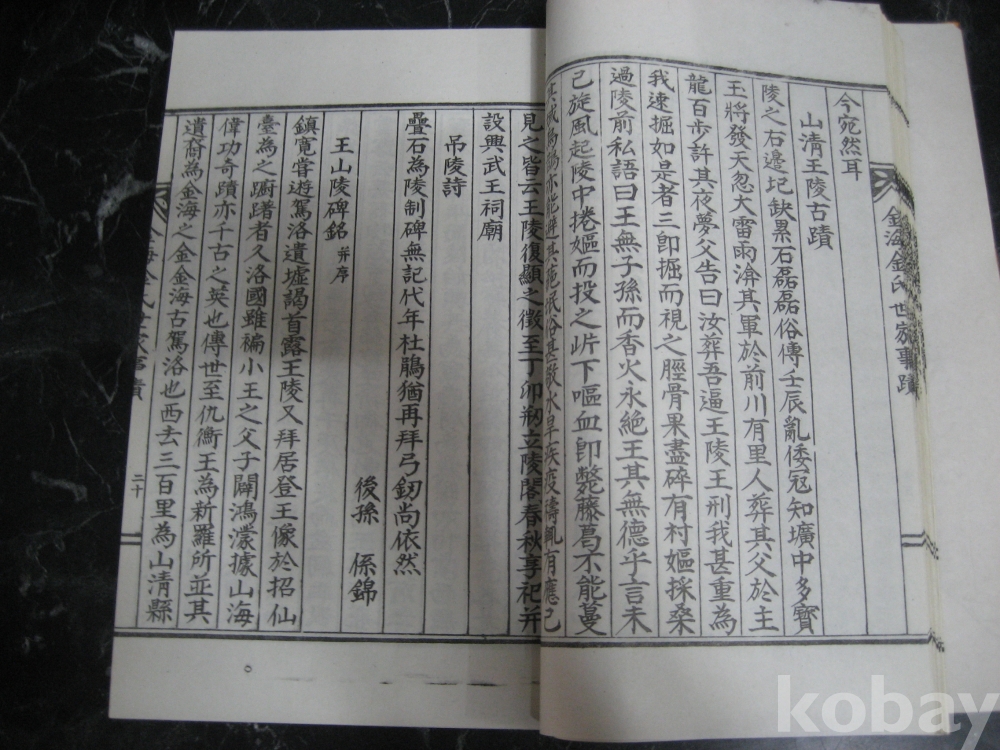 金海金氏世家事蹟
今宛然耳
山清王陵古蹟
陵之右邊圮缺累石磊磊俗傳壬辰亂倭冦知壙中多寶
玉將發天忽大雷雨渰其軍於前川有里人葬其父於主
龍百步許其夜夢父告曰汝葬吾逼王陵王刑我甚重為
我速掘如是者三卽掘而視之脛骨果盡碎有村嫗採桑
過陵前私語曰王無子孫而香火永絶王其無德乎言未
已旋風起陵中捲嫗而投之岸下嘔血卽斃藤葛不能蔓
避其 水旱疾疫禱輒有應已
見之皆云王陵復顯之徵至丁卯刱立陵閣春秋享祀并
設興武王祠廟
吊陵詩
疊石為陵制碑無記代年杜鵑猶再拜弓釰尚依然
後孫 係錦
王山陵碑銘 并序
鎮寛嘗遊駕洛遺墟謁首露王陵又拜居登王像於招仙
臺為之躕躇者久洛國雖褊小王之父子闢鴻濛據山海
偉功奇蹟亦千古之英也傳世至仇衡王為新羅所並其
遺裔為金海之金金海古駕洛也西去三百里為山清縣
二十
kobay